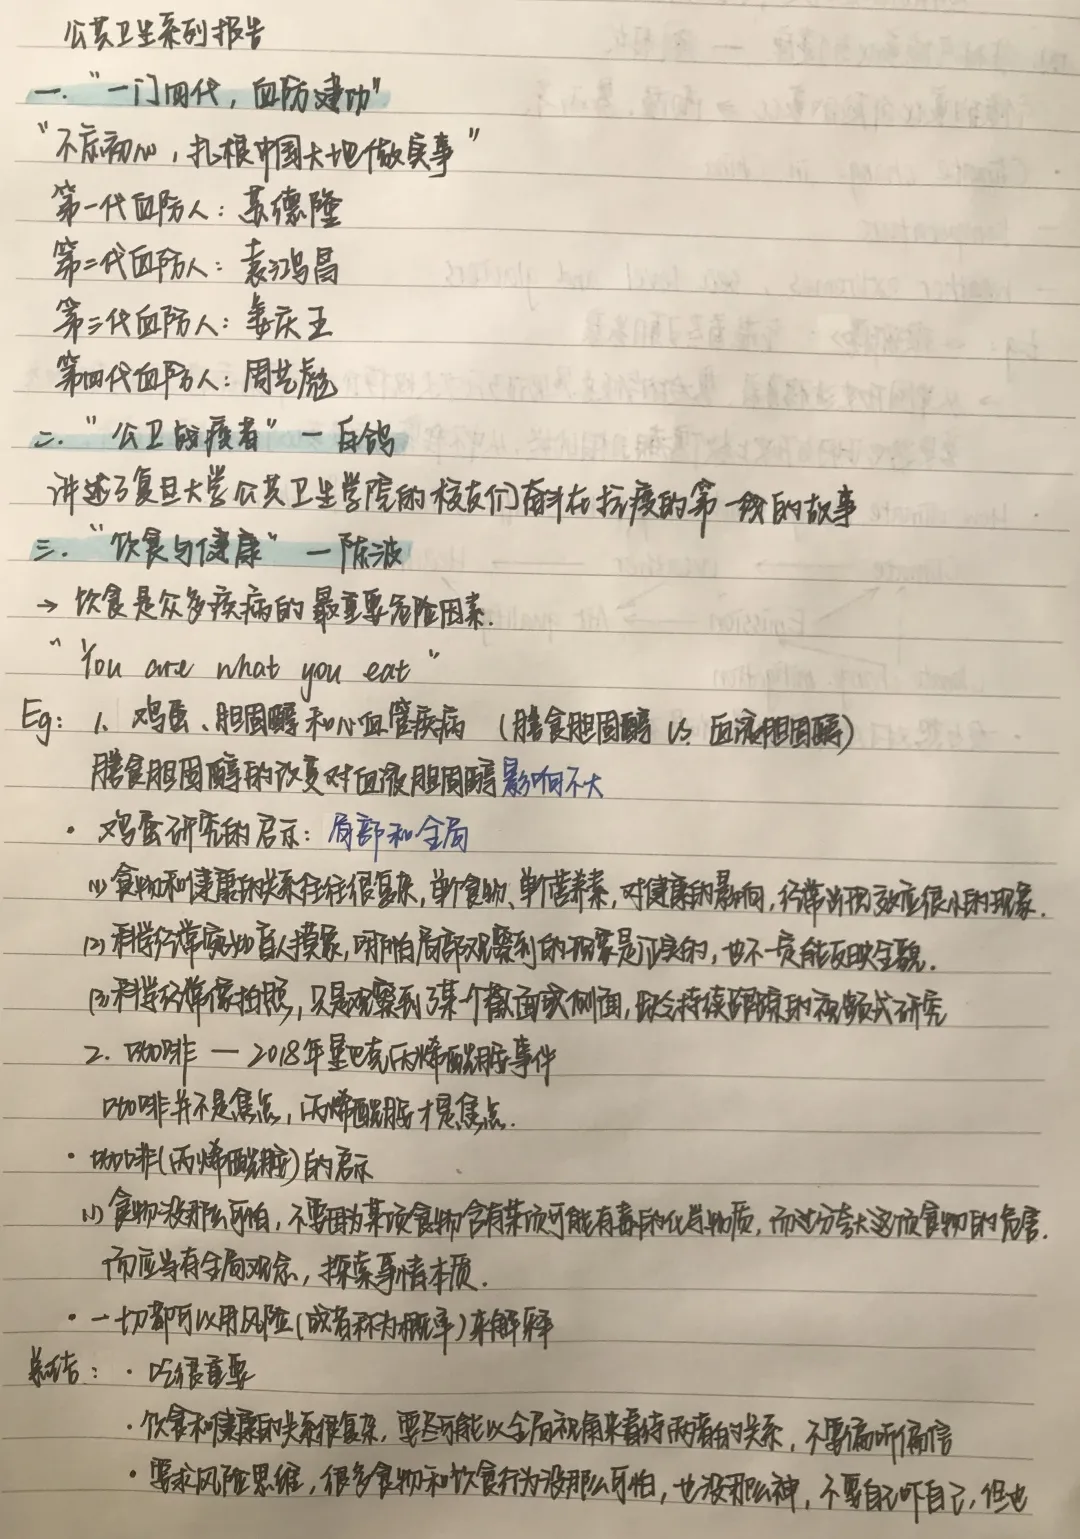 公共卫生系列报告
一. “一门四代，血防建功”
“不忘初心，扎根中国大地做实事”
第一代血防人：苏德隆
第二代血防人：袁鸿昌
第三代血防人：姜庆五
第四代血防人：周艺彪
二. “公卫战疫者” — 白鸽
讲述了复旦大学公共卫生学院的校友们奋斗在抗疫的第一线的故事
三. “饮食与健康” — 陈波
→ 饮食是众多疾病的最重要危险因素.
“You are what you eat”
Eg: 1. 鸡蛋、胆固醇和心血管疾病 (膳食胆固醇 VS 血液胆固醇)
膳食胆固醇的改变对血液胆固醇影响不大
· 鸡蛋研究的启示: 局部和全局
(1) 食物和健康的关系往往很复杂, 单个食物、单个营养素, 对健康的影响, 经常出现效应很小的现象.
(2) 科学经常宛如盲人摸象, 哪怕局部观察到的现象是证实的, 也不一定能反映全貌.
(3) 科学经常像拍照, 只是观察到了某个截面或侧面, 缺乏持续跟踪的视频式研究
2. 咖啡 — 2018年星巴克丙烯酰胺事件
咖啡并不是焦点, 丙烯酰胺才是焦点.
· 咖啡(丙烯酰胺)的启示
(1) 食物没那么可怕, 不要因为某项食物含有某项可能有毒的化学物质, 而过分夸大这项食物的危害.
而应当有全局观念, 探索事情本质.
· 一切都可以用风险(或者称为概率)来解释
总结: · 吃很重要
· 饮食和健康的关系很复杂, 要尽可能以全局视角来看待两者的关系, 不要偏听偏信
· 要求风险思维, 很多食物和饮食行为没那么可怕, 也没那么神, 不要自己吓自己, 但也